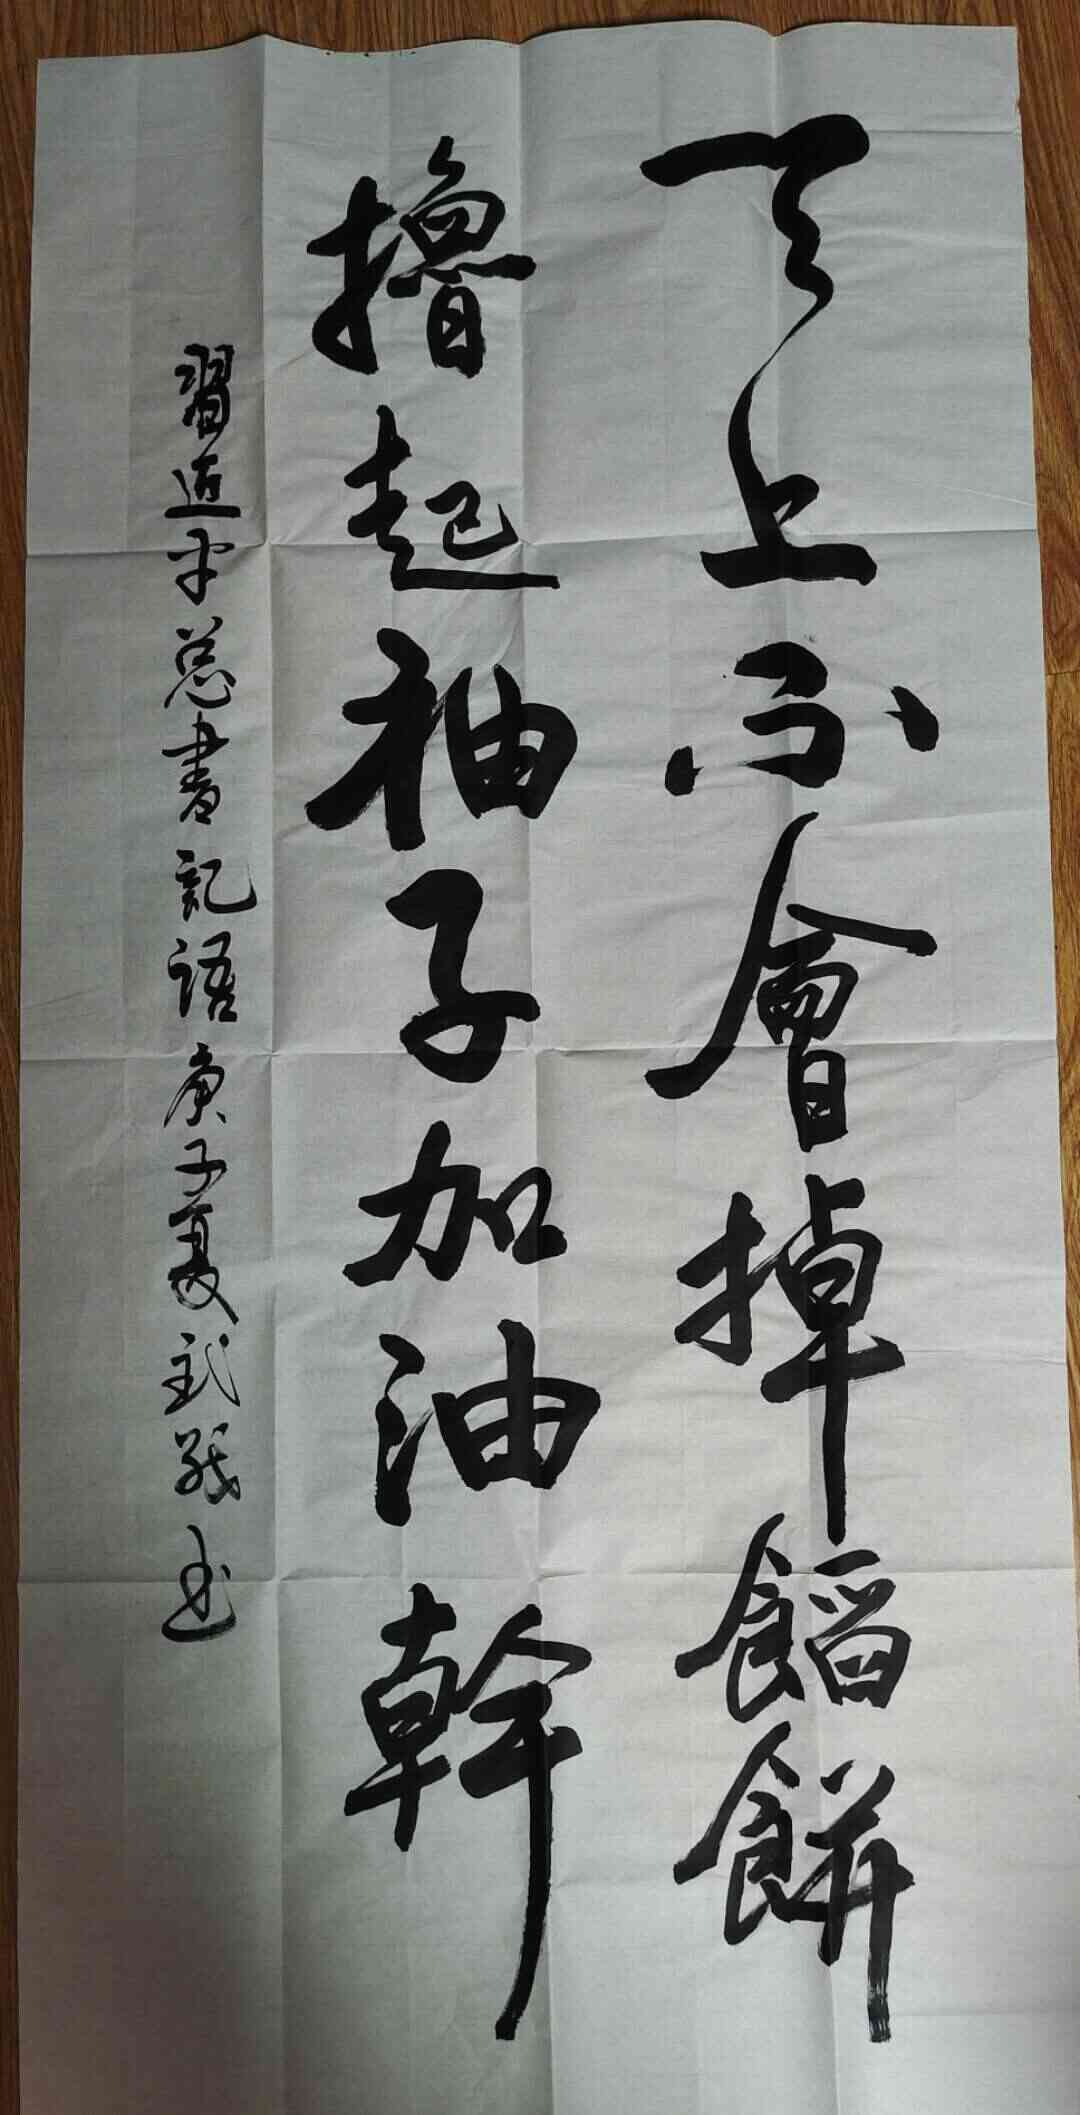 天上不會掉餡餅
擼起袖子加油幹
習近平总書記語庚子夏武战书